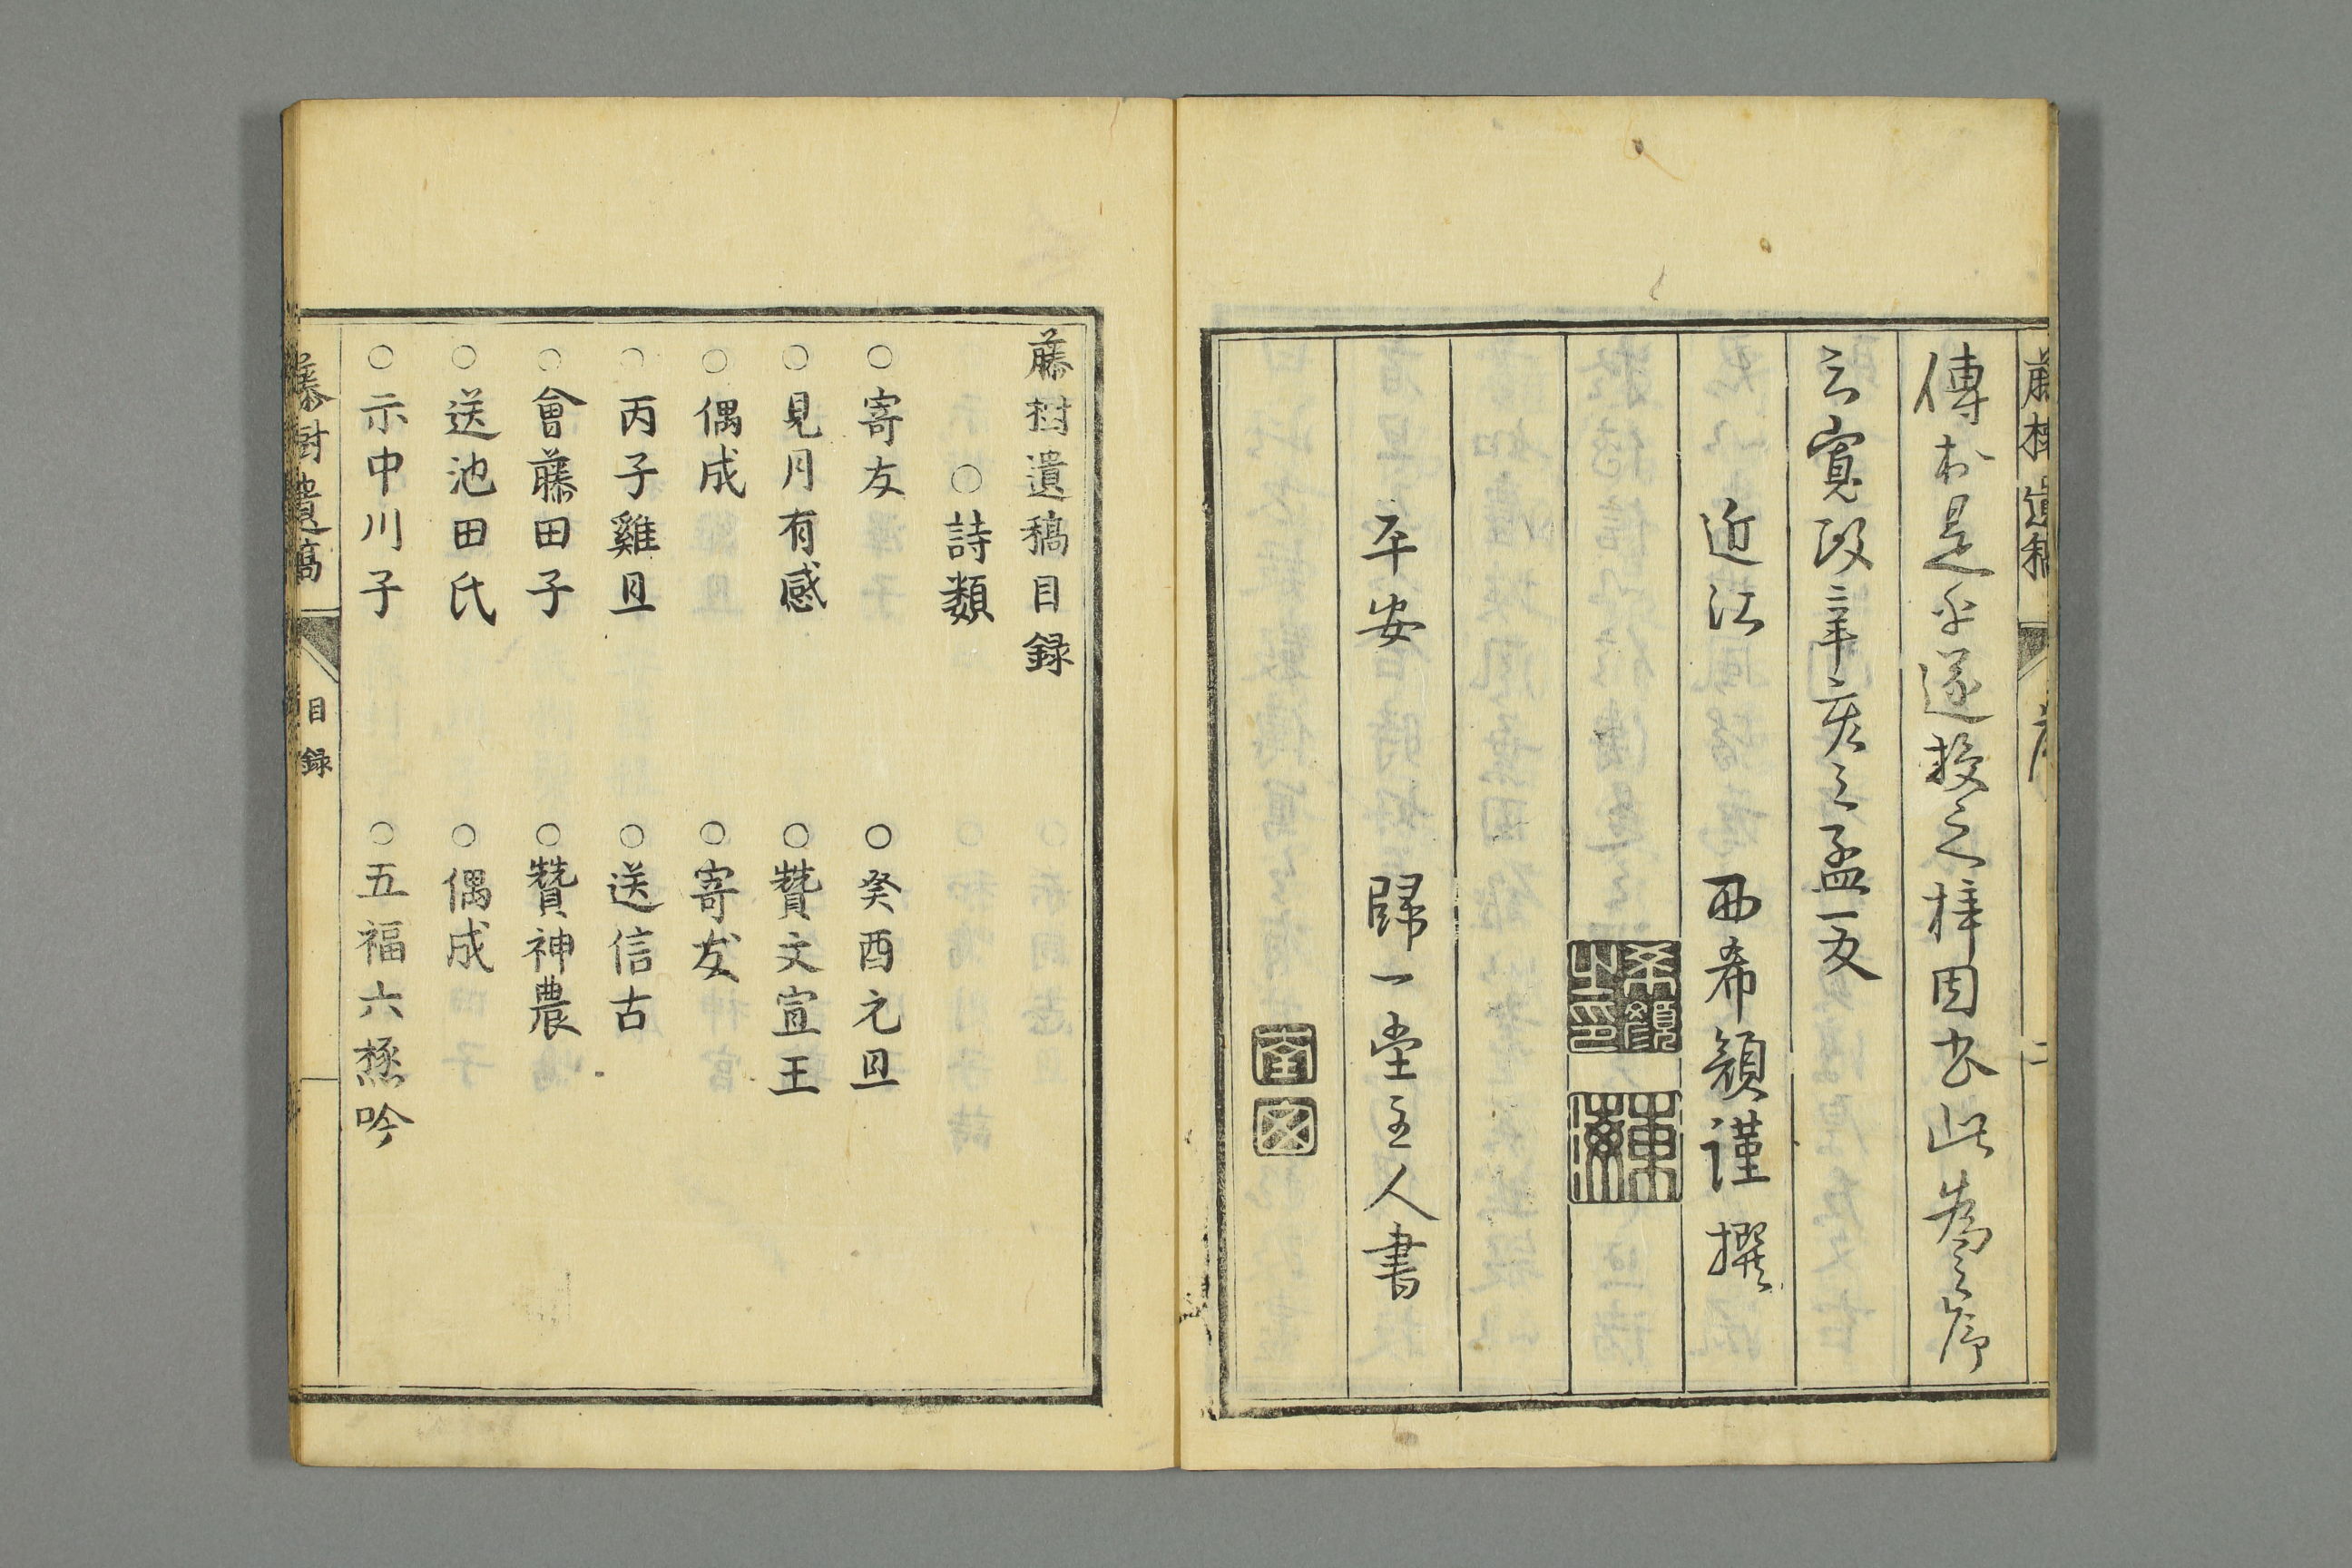 傳於是乎遂授之梓因書此為之序
云寛政辛亥之孟夏
近江　西希顔謹撰
平安　歸一堂主人書
藤樹遺稿目録
○詩類
○寄友　○癸酉元旦
○見月有感　○贊文宣王
○偶成　○寄友
○丙子雞旦　○送信古
○會藤田子　○贊神農
○送池田氏　○偶成
○示中川子　○五福六極吟
藤樹遺稿　目録